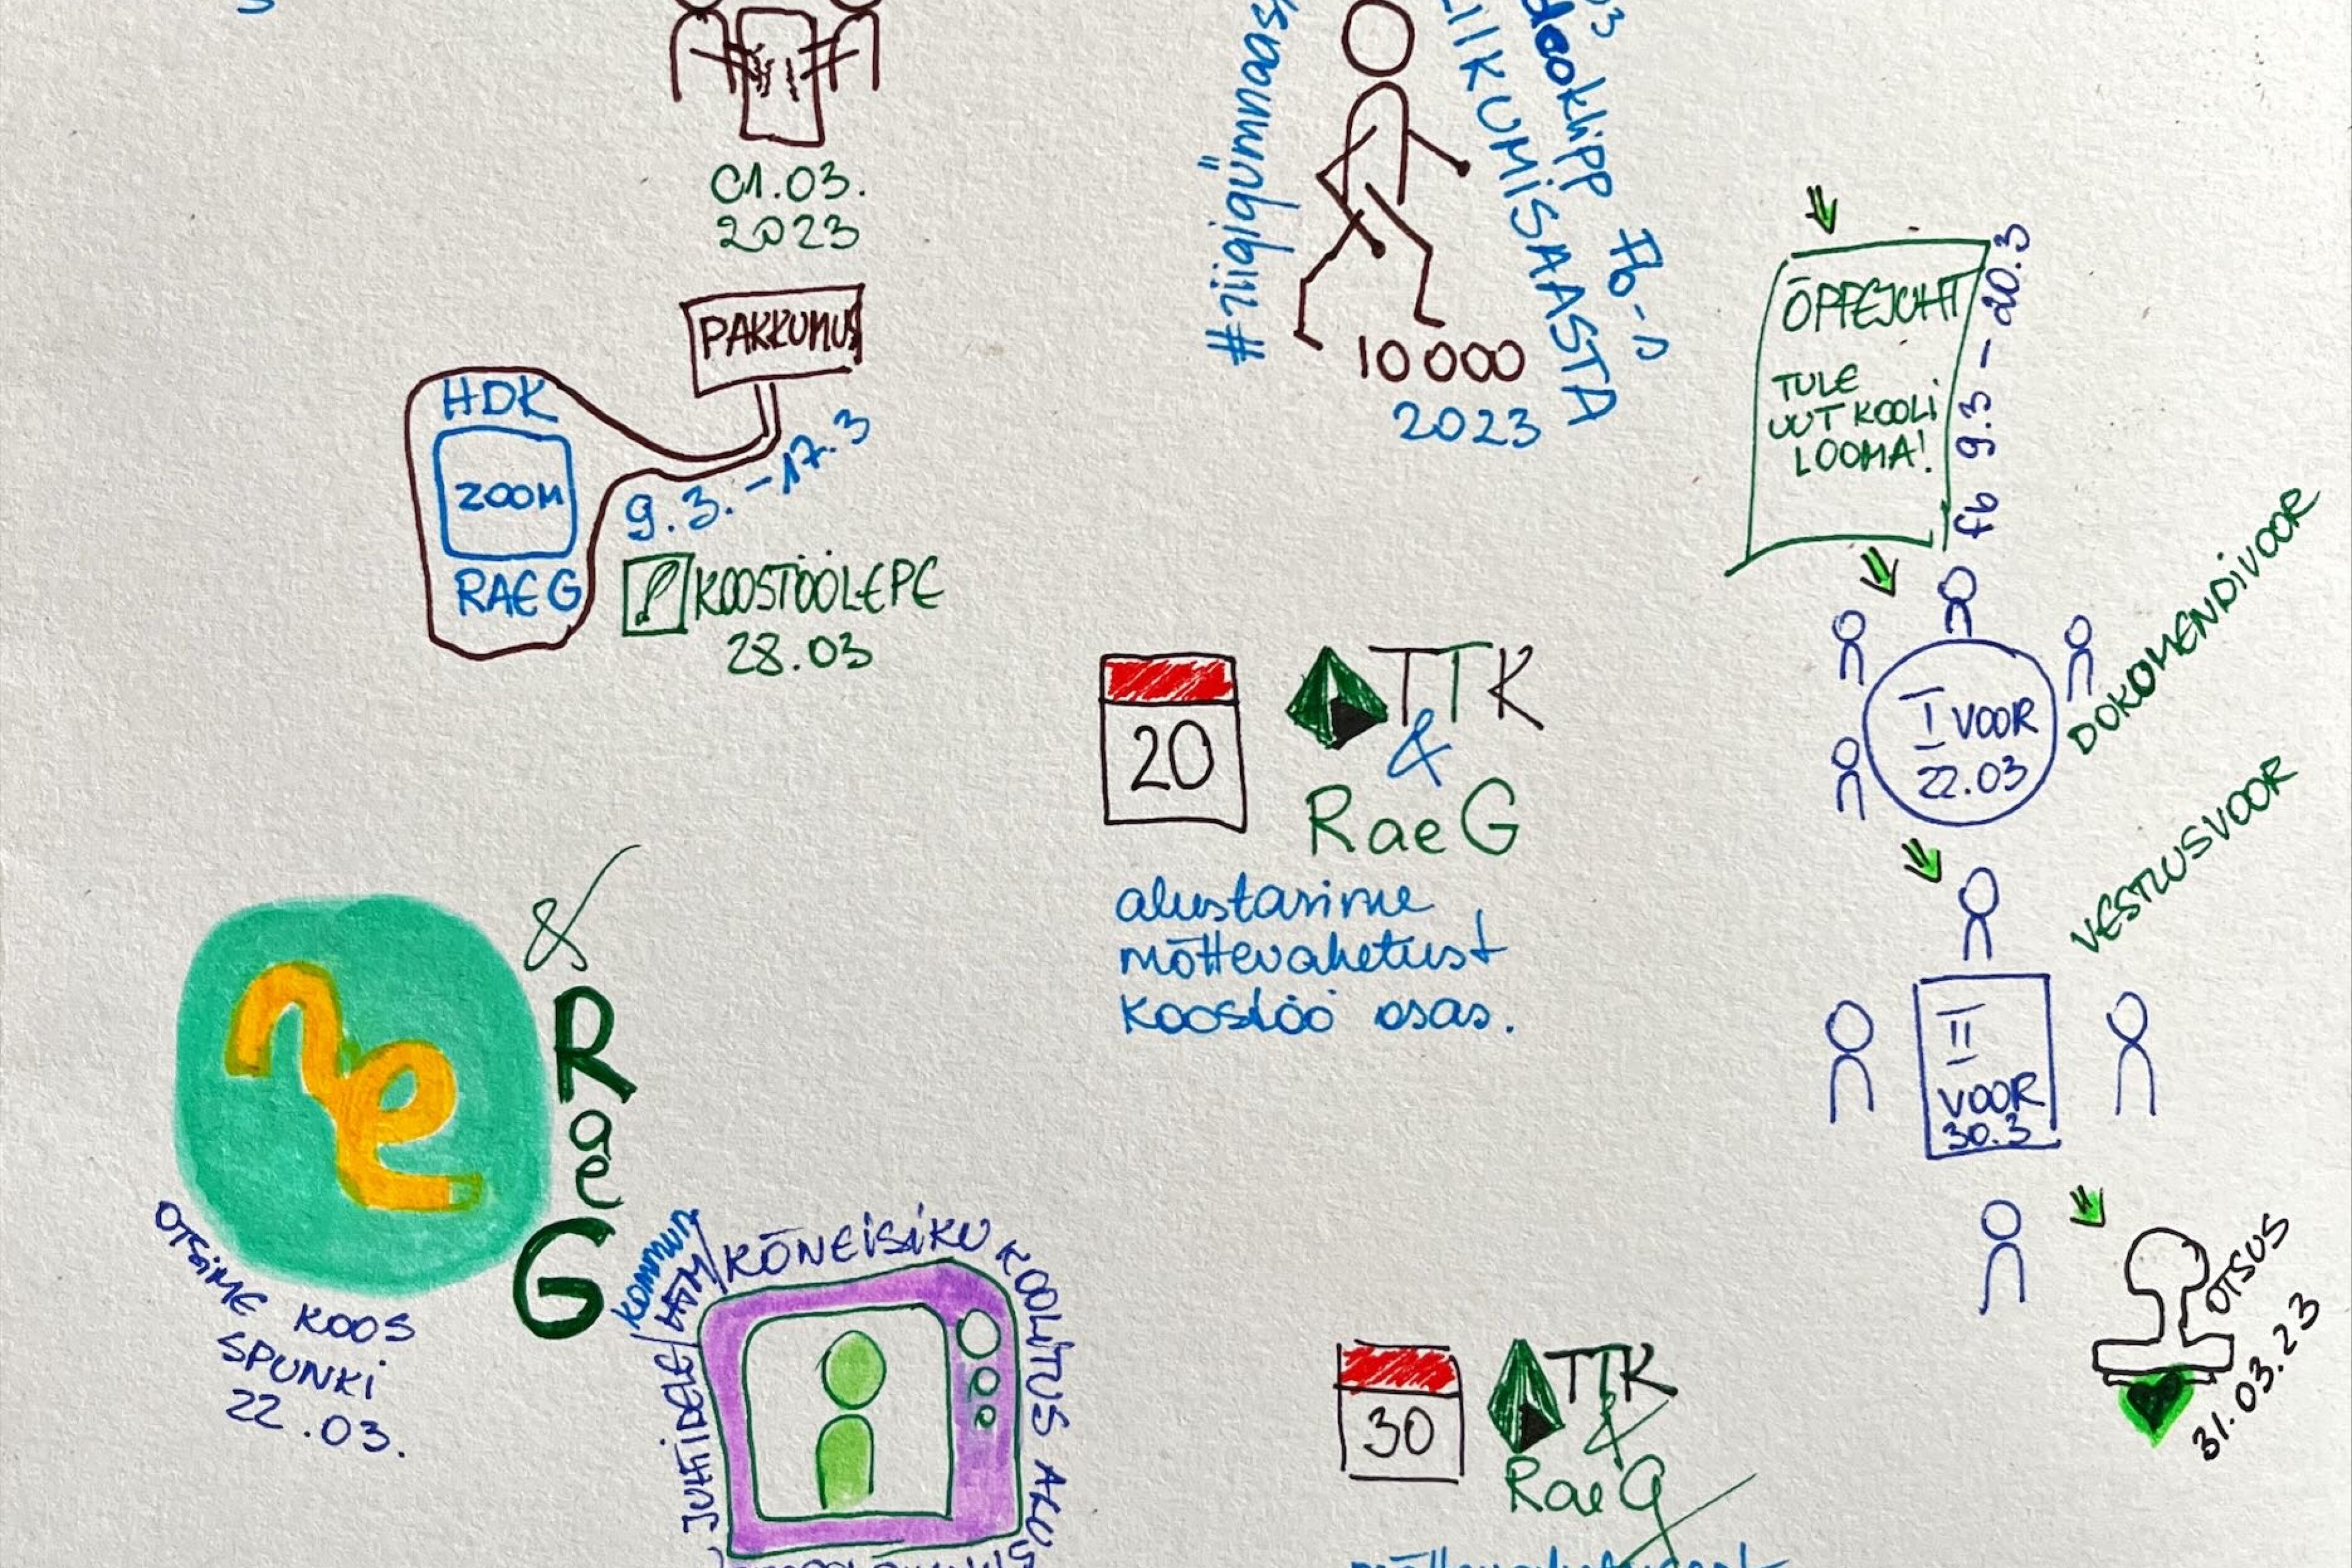 01.03.
2023
PAKKUMUS
HDK
ZOOM
RAE G
9.3. - 17.3
KOOSTÖÖLEPE
28.03
#riigigümnaas
LIIKUMISAASTA
deoklipp Fb-s
03
10 000
2023
ÕPPEJUHT
TULE
UUT KOOLI
LOOMA!
fb 9.3 - 20.3
I VOOR
22.03
DOKOMENDIVOOR
II
VOOR
30.3
VESTLUSVOOR
OTSUS
31.03.23
20
TTK
&
Rae G
alustasime
mõttevahetust
koostöö osas.
ne
& Rae G
OTSIME KOOS
SPUNKI
22.03.
JUHTIDELE
KÕNEISIKU KOOLITUS
30
TTK
&
Rae G